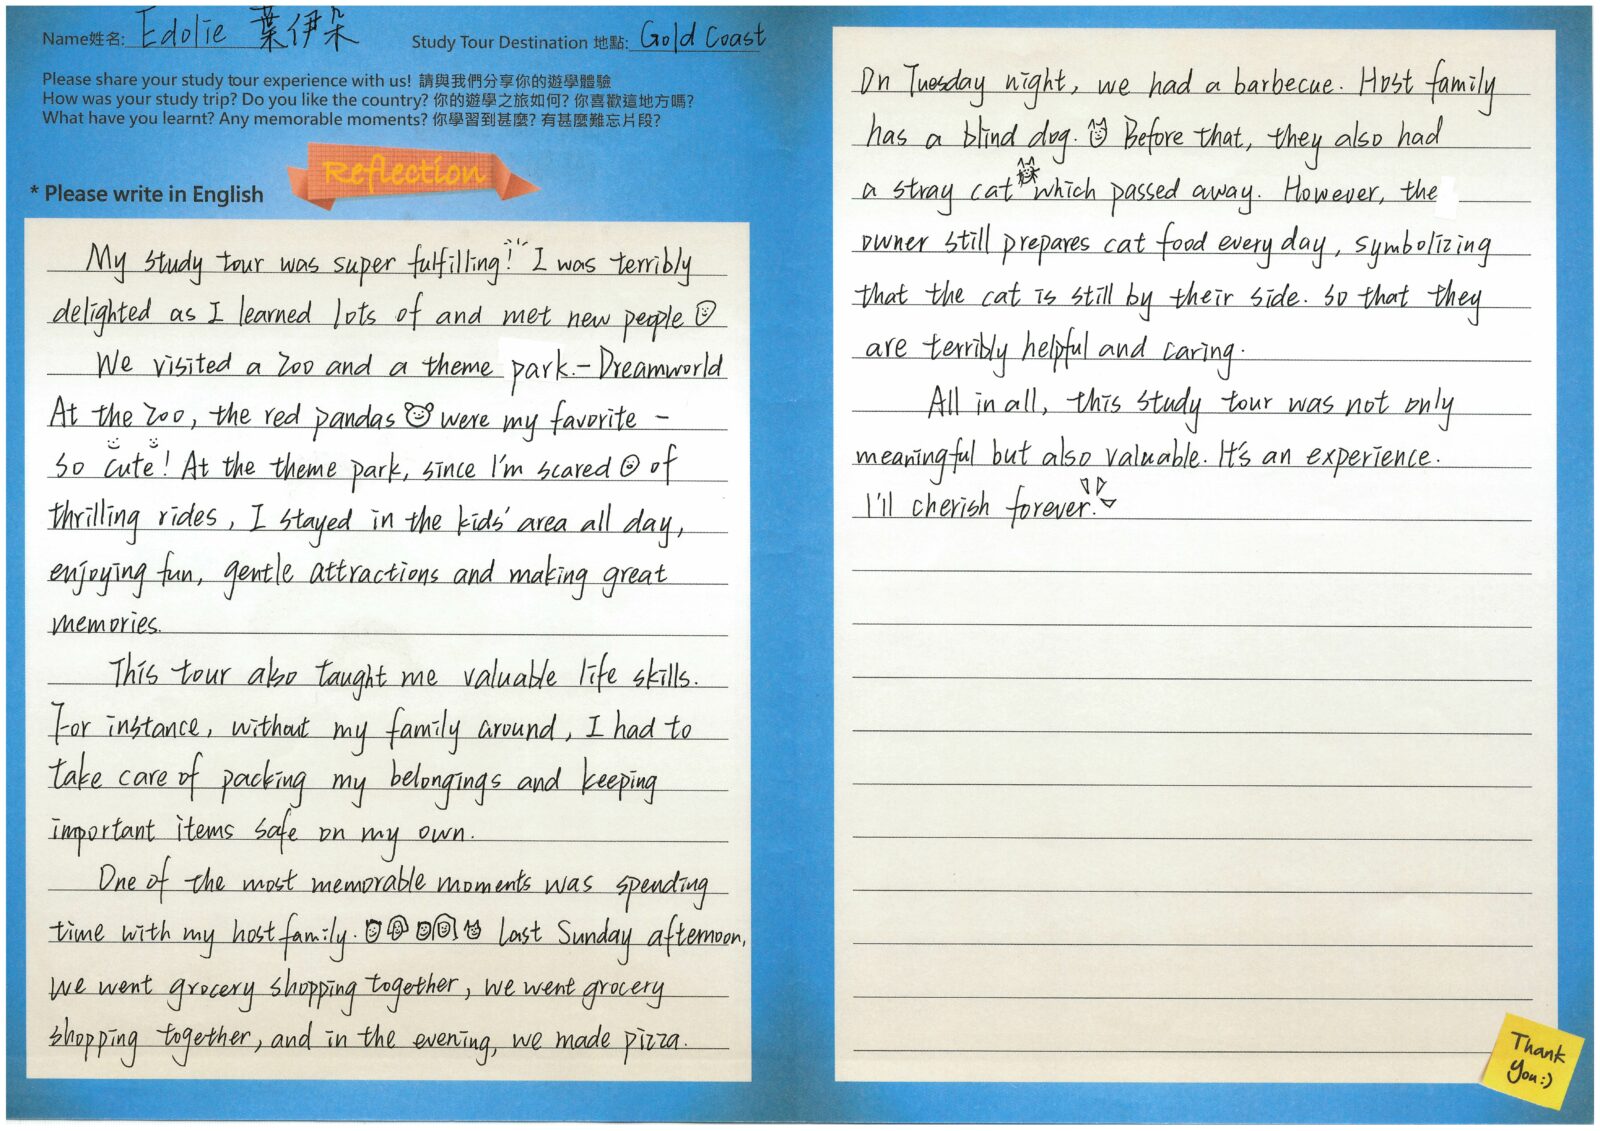 Name姓名: Edolie 葉伊朵
Study Tour Destination 地點: Gold Coast
Please share your study tour experience with us! 請與我們分享你的遊學體驗
How was your study trip? Do you like the country? 你的遊學之旅如何? 你喜歡這地方嗎?
What have you learnt? Any memorable moments? 你學習到甚麼? 有甚麼難忘片段?
Reflection
* Please write in English
My study tour was super fulfilling! I was terribly
delighted as I learned lots of and met new people
We visited a zoo and a theme park.- Dreamworld
At the zoo, the red pandas were my favorite -
so cute! At the theme park, since I'm scared of
thrilling rides, I stayed in the kids' area all day,
enjoying fun, gentle attractions and making great
memories.
This tour also taught me valuable life skills.
For instance, without my family around, I had to
take care of packing my belongings and keeping
important items safe on my own.
One of the most memorable moments was spending
time with my host family. Last Sunday afternoon,
we went grocery shopping together, we went grocery
shopping together, and in the evening, we made pizza.
On Tuesday night, we had a barbecue. Host family
has a blind dog. Before that, they also had
a stray cat which passed away. However, the
owner still prepares cat food every day, symbolizing
that the cat is still by their side. So that they
are terribly helpful and caring.
All in all, this study tour was not only
meaningful but also valuable. It's an experience.
I'll cherish forever.
Thank
You:)